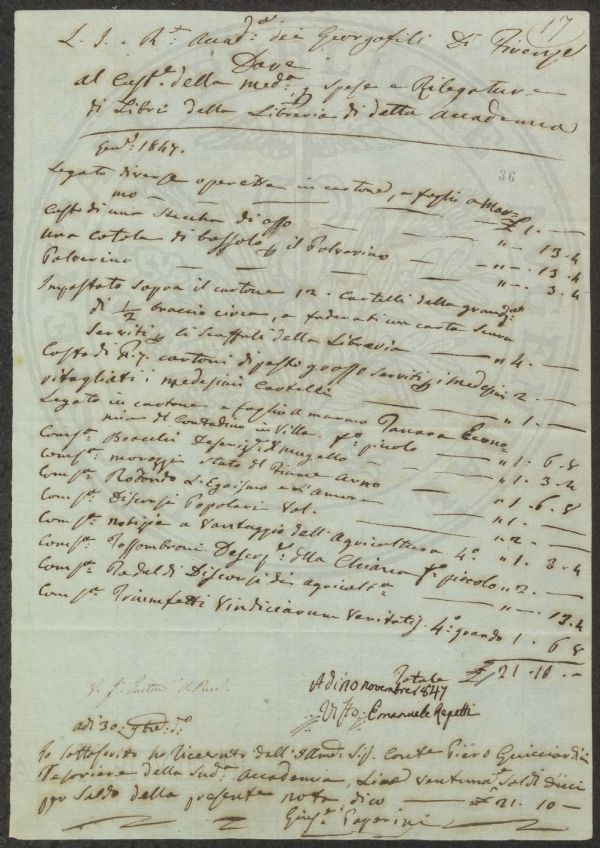 17
L. I. e R. Accad.a dei Georgofili di Firenze
Dare
al Cust.e della med.a p spese e Rilegature
di Libri della Libreria di detta Accademia
36
Gen.o 1847.
Legato diverse operette in cartone, e foglio a mar=
mo — £ 1. —
Cost. di una stecca di osso — " — 13. 4
Una cotola di bossolo p il Polverino — " — 13. 4
Polverino — " — 3. 4
Impostato sopra il cartone 12. Cartelli della grand.a
di 1/2 braccio circa, e foderati con carta
serviti p li scaffali della Libreria — " 4. —
Costo di N. 7. cartoni di pasto grosso serviti p i medesimi 2. —
ritagliati i medesimi Cartelli — " 1. —
Legato in cartone e foglio a marmo Tanara Econo=
mia del Contadino in Villa f.o piccolo — " 1. 6. 8
Com. s.a Descriz. del Mugello — " 1. 3. 4
Com. s.a Morozzi Stato del Fiume Arno — " 1. 6. 8
Com. s.a L'Egoismo e L'Amore — " 1. —
Com. s.a Discorsi Popolari Vol. — " 2. —
Com. s.a notizie a vantaggio dell'Agricoltura 4.o — 1. 3. 4
Com. s.a Fossombroni Descriz. della Chiana f.o piccolo " 2. —
Com. s.a Radaldi Discorsi di agricolt.a — " — 13. 4
Com. s.a Triumfetti Vindiciarum Veritatis. 4.o grande 1. 6 8
Totale £ 21. 10. —
Adi 10 novembre 1847
Visto. Emanuele Repetti
adi 30. 9bre. d.o
Io sottoscritto ho ricevuto dall'Ill.mo Sig. Conte Piero Guicciardini
Tesoriere della Sud.a Accademia, Lire ventuna e Soldi dieci
per saldo della presente nota, dico — £ 21. 10 —
Gius.e Paperini